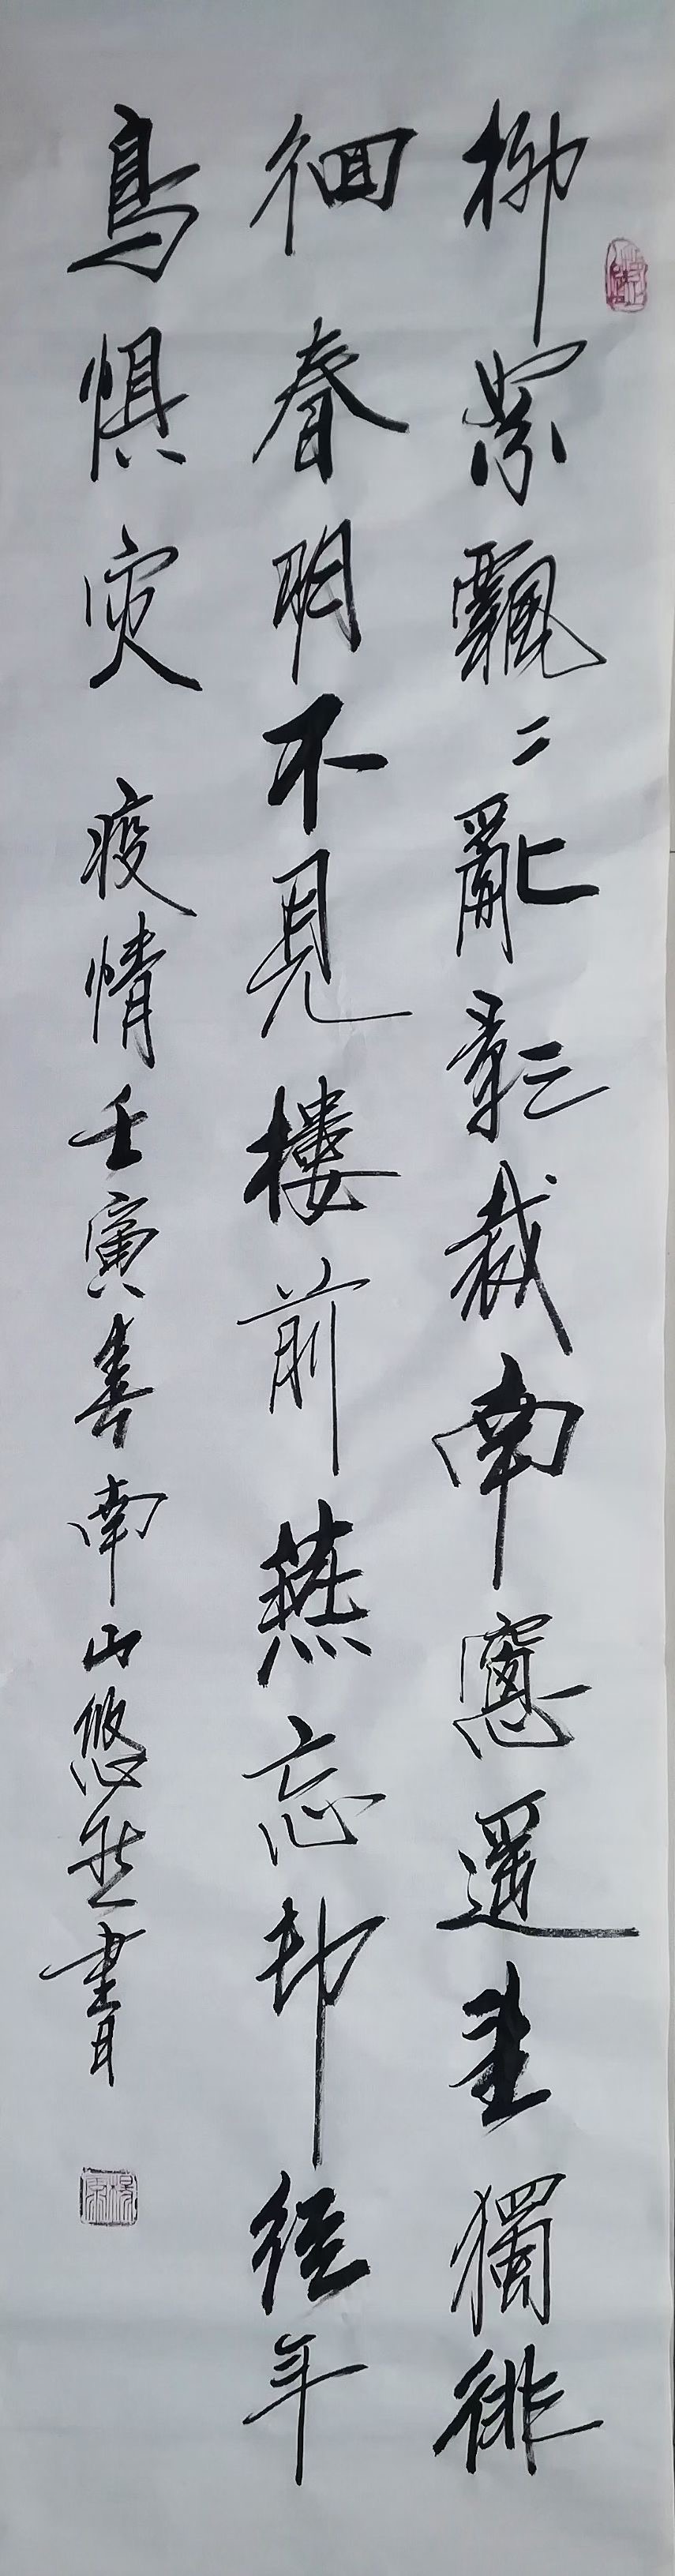 柳絮飄〻亂影裁南窻遥望獨徘
徊春明不見樓前燕忘却經年
鳥惧災 疫情壬寅春南山悠然書